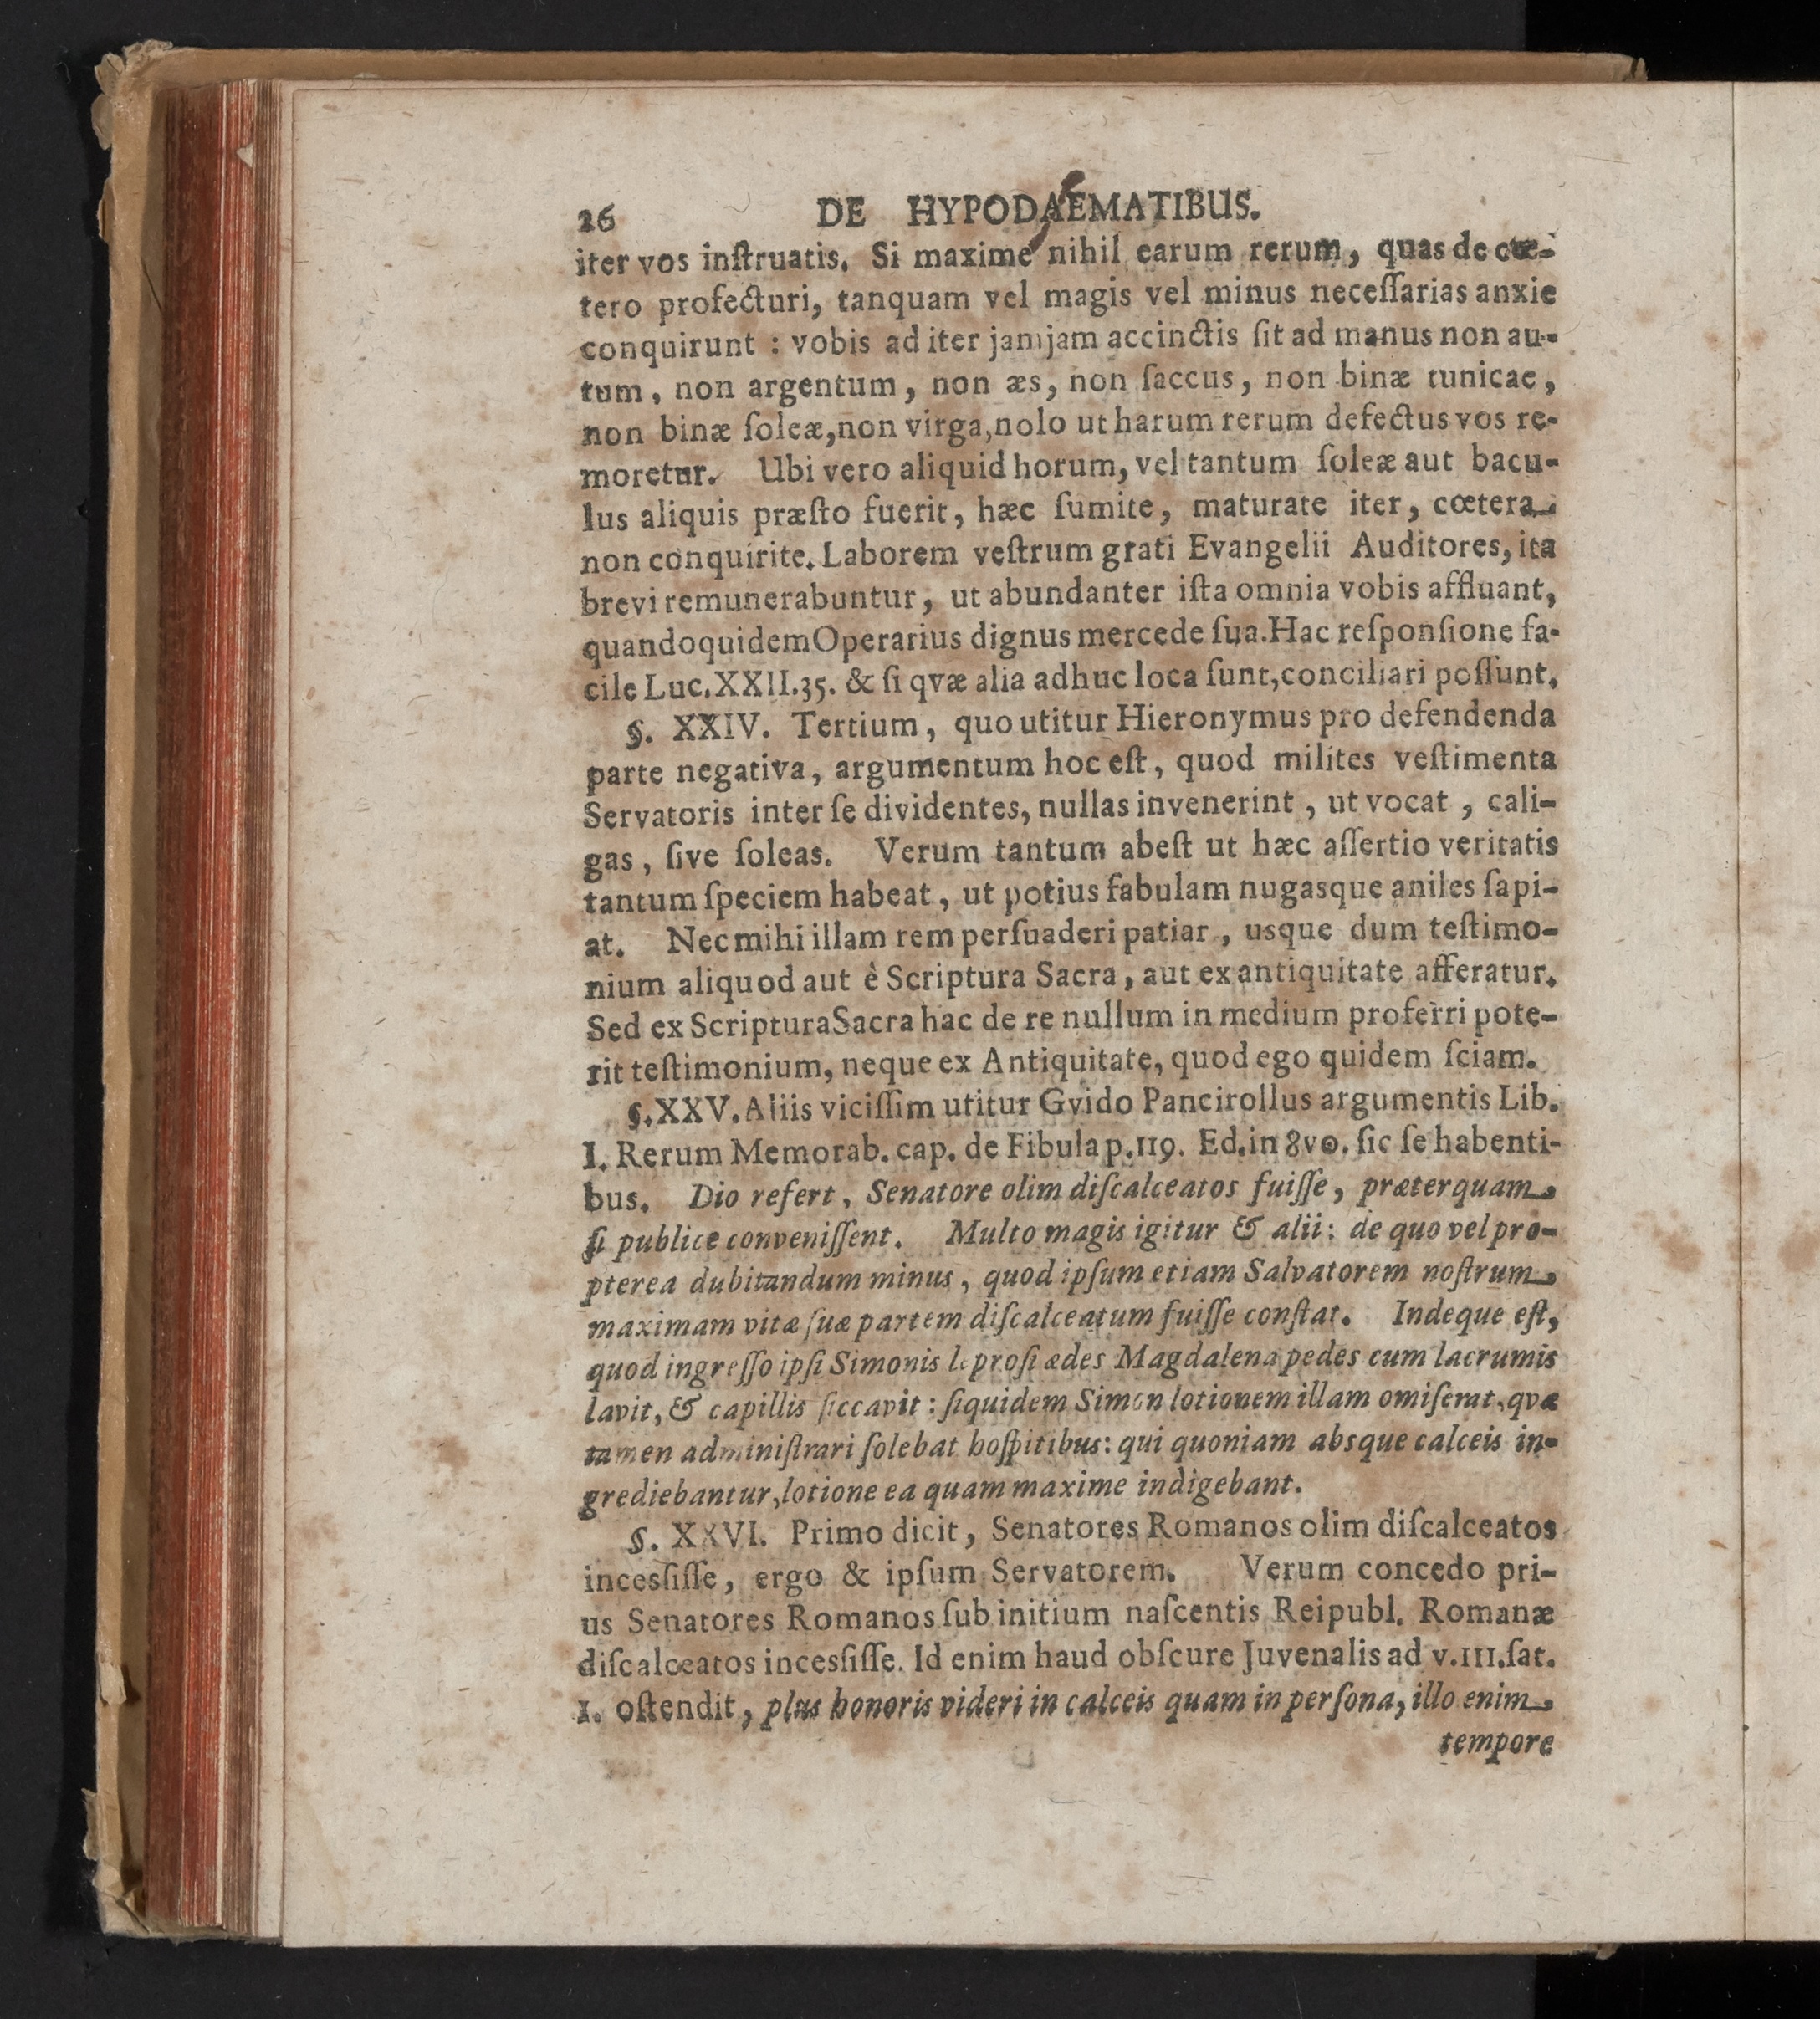 26 DE HYPODAEMATIBUS.
iter vos inſtruatis. Si maxime nihil earum rerum, quas de cœ-
tero profecturi, tanquam vel magis vel minus neceſſarias anxie
conquirunt : vobis ad iter jamjam accinctis ſit ad manus non au-
tum, non argentum, non æs, non ſaccus, non binæ tunicae,
non binæ ſoleæ, non virga, nolo ut harum rerum defectus vos re-
moretur. Ubi vero aliquid horum, vel tantum ſoleæ aut bacu-
lus aliquis præſto fuerit, hæc ſumite, maturate iter, cœtera
non conquirite. Laborem veſtrum grati Evangelii Auditores, ita
brevi remunerabuntur, ut abundanter iſta omnia vobis affluant,
quandoquidem Operarius dignus mercede ſua. Hac reſponſione fa-
cile Luc. XXII. 35. & ſi qvæ alia adhuc loca ſunt, conciliari poſſunt.
§. XXIV. Tertium, quo utitur Hieronymus pro defendenda
parte negativa, argumentum hoc eſt, quod milites veſtimenta
Servatoris inter ſe dividentes, nullas invenerint, ut vocat, cali-
gas, ſive ſoleas. Verum tantum abeſt ut hæc aſſertio veritatis
tantum ſpeciem habeat, ut potius fabulam nugasque aniles ſapi-
at. Nec mihi illam rem perſuaderi patiar, usque dum teſtimo-
nium aliquod aut è Scriptura Sacra, aut ex antiquitate afferatur.
Sed ex Scriptura Sacra hac de re nullum in medium proferri pote-
rit teſtimonium, neque ex Antiquitate, quod ego quidem ſciam.
§. XXV. Aliis viciſſim utitur Gvido Pancirollus argumentis Lib.
I. Rerum Memorab. cap. de Fibula p. 119. Ed. in 8vo. ſic ſe habenti-
bus. Dio refert, Senatore olim diſcalceatos fuiſſe, præterquam
ſi publice conveniſſent. Multo magis igitur & alii: de quo vel pro-
pterea dubitandum minus, quod ipſum etiam Salvatorem noſtrum
maximam vitæ ſuæ partem diſcalceatum fuiſſe conſtat. Indeque eſt,
quod ingreſſo ipſi Simonis leproſi ædes Magdalena pedes cum lacrumis
lavit, & capillis ſiccavit : ſiquidem Simon lotionem illam omiſerat, qvæ
tamen adminiſtrari ſolebat hoſpitibus: qui quoniam absque calceis in-
grediebantur, lotione ea quam maxime indigebant.
§. XXVI. Primo dicit, Senatores Romanos olim diſcalceatos
incesſiſſe, ergo & ipſum Servatorem. Verum concedo pri-
us Senatores Romanos ſub initium naſcentis Reipubl. Romanæ
diſcalceatos incesſiſſe. Id enim haud obſcure Juvenalis ad v. III. ſat.
1. oſtendit, plus honoris videri in calceis quam in perſona, illo enim
tempore